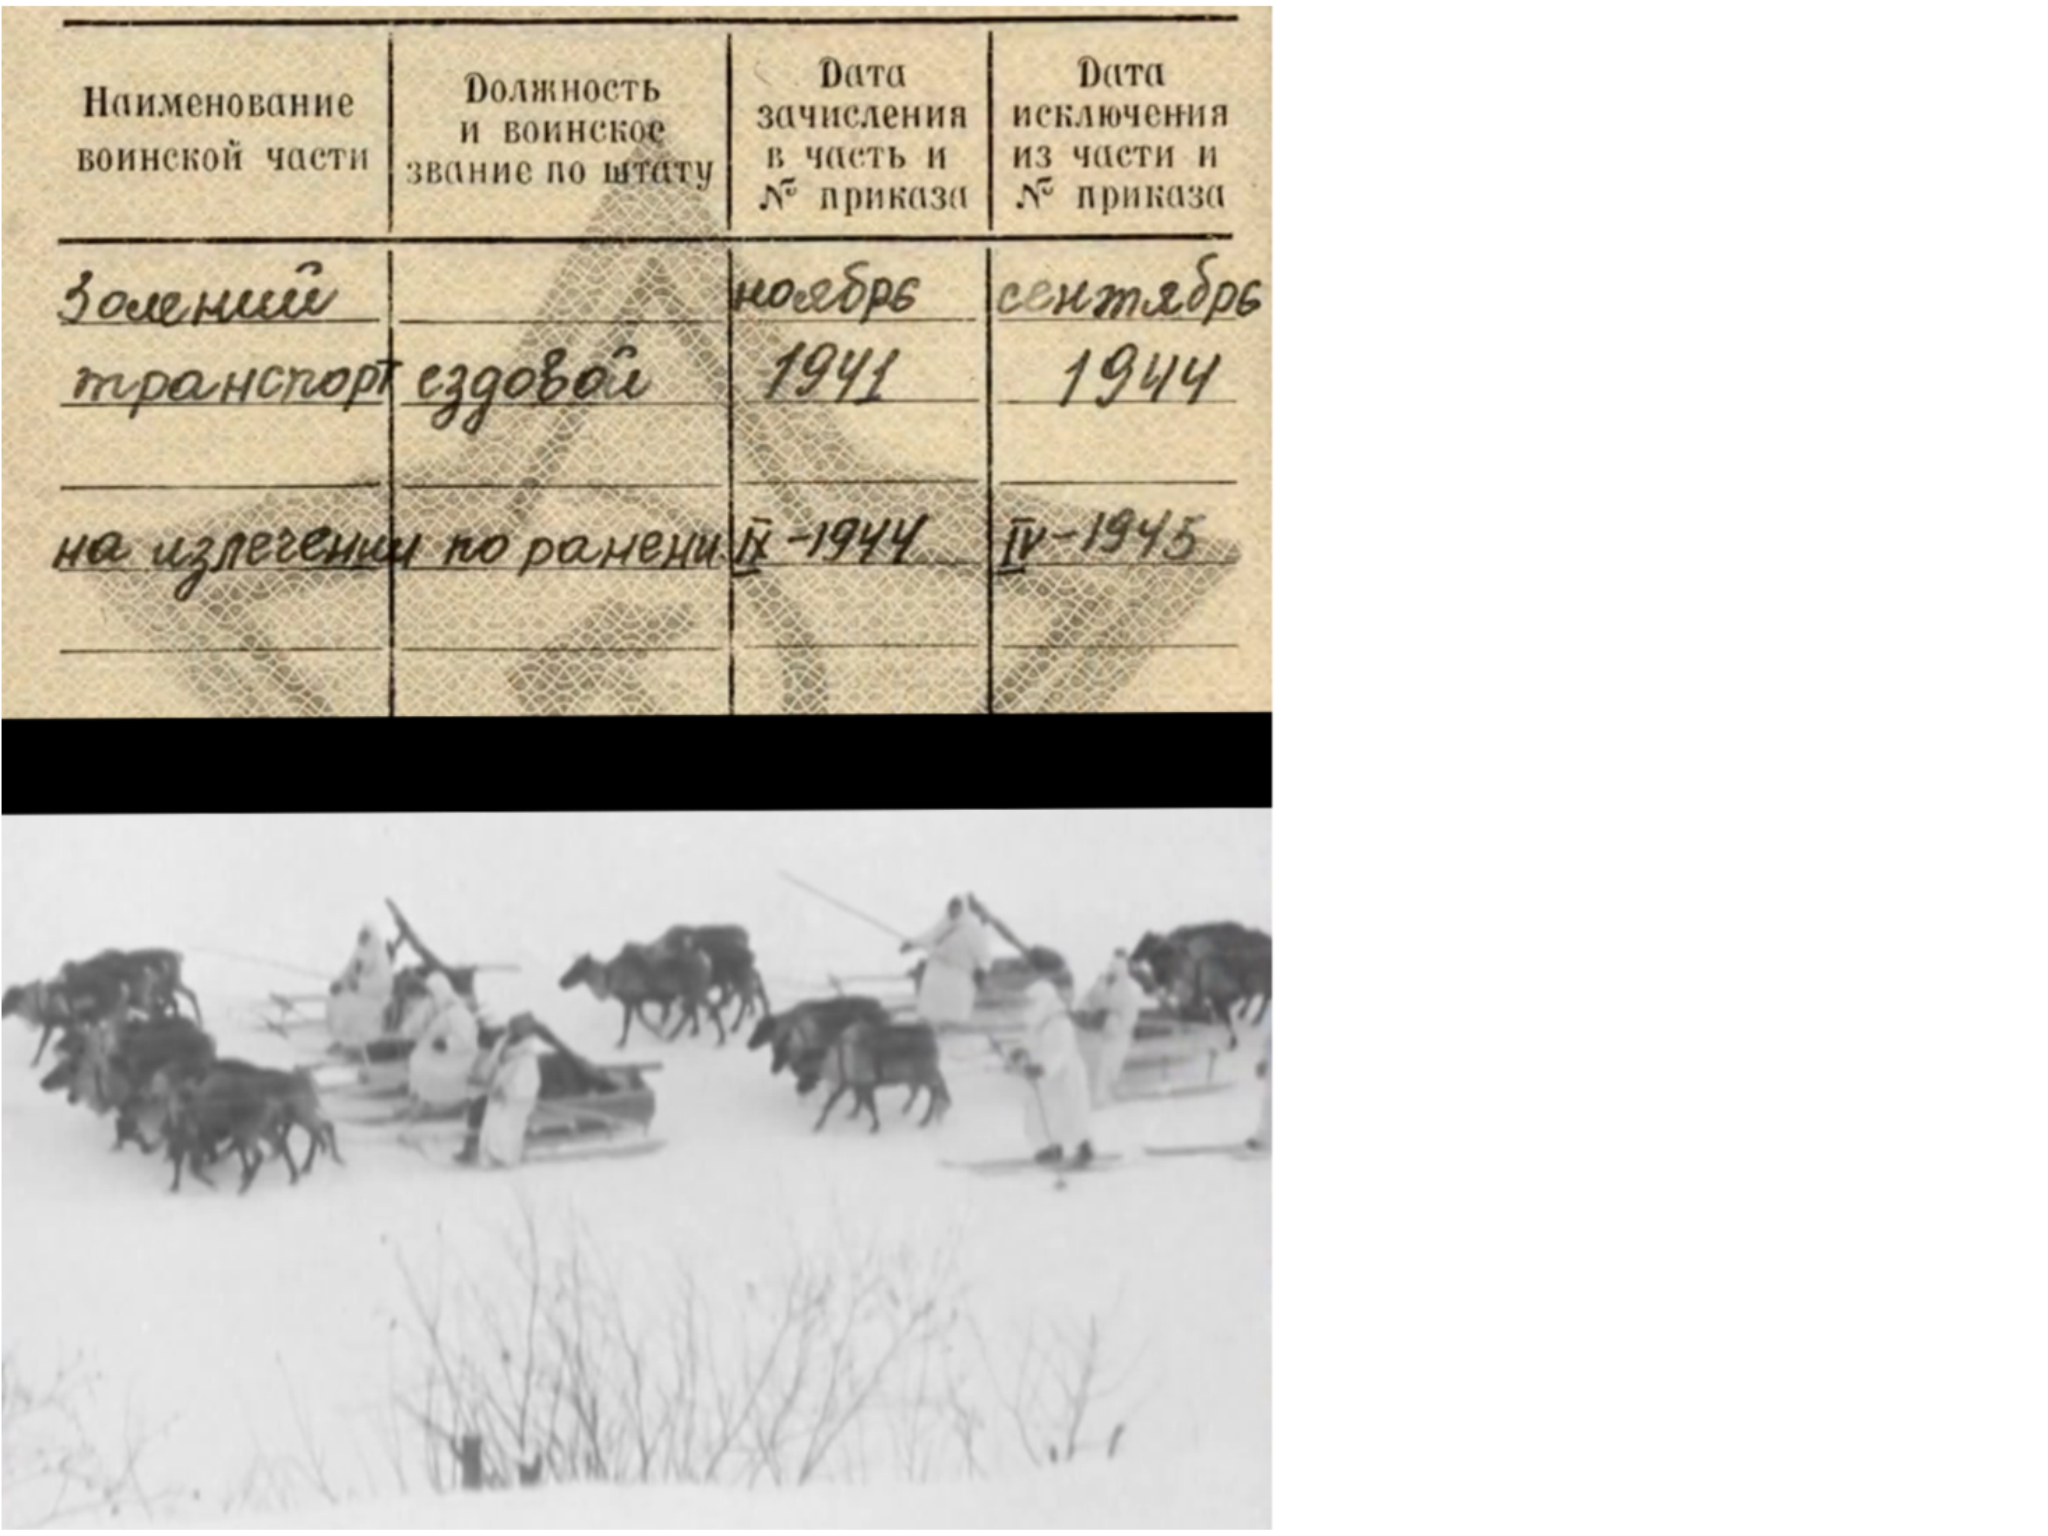 Наименование воинской части
Должность и воинское звание по штату
Дата зачисления в часть и № приказа
Дата исключения из части и № приказа
3 олений ноябрь сентябрь
транспорт ездовой 1941 1944
на излечении по ранени IX-1944 IV-1945